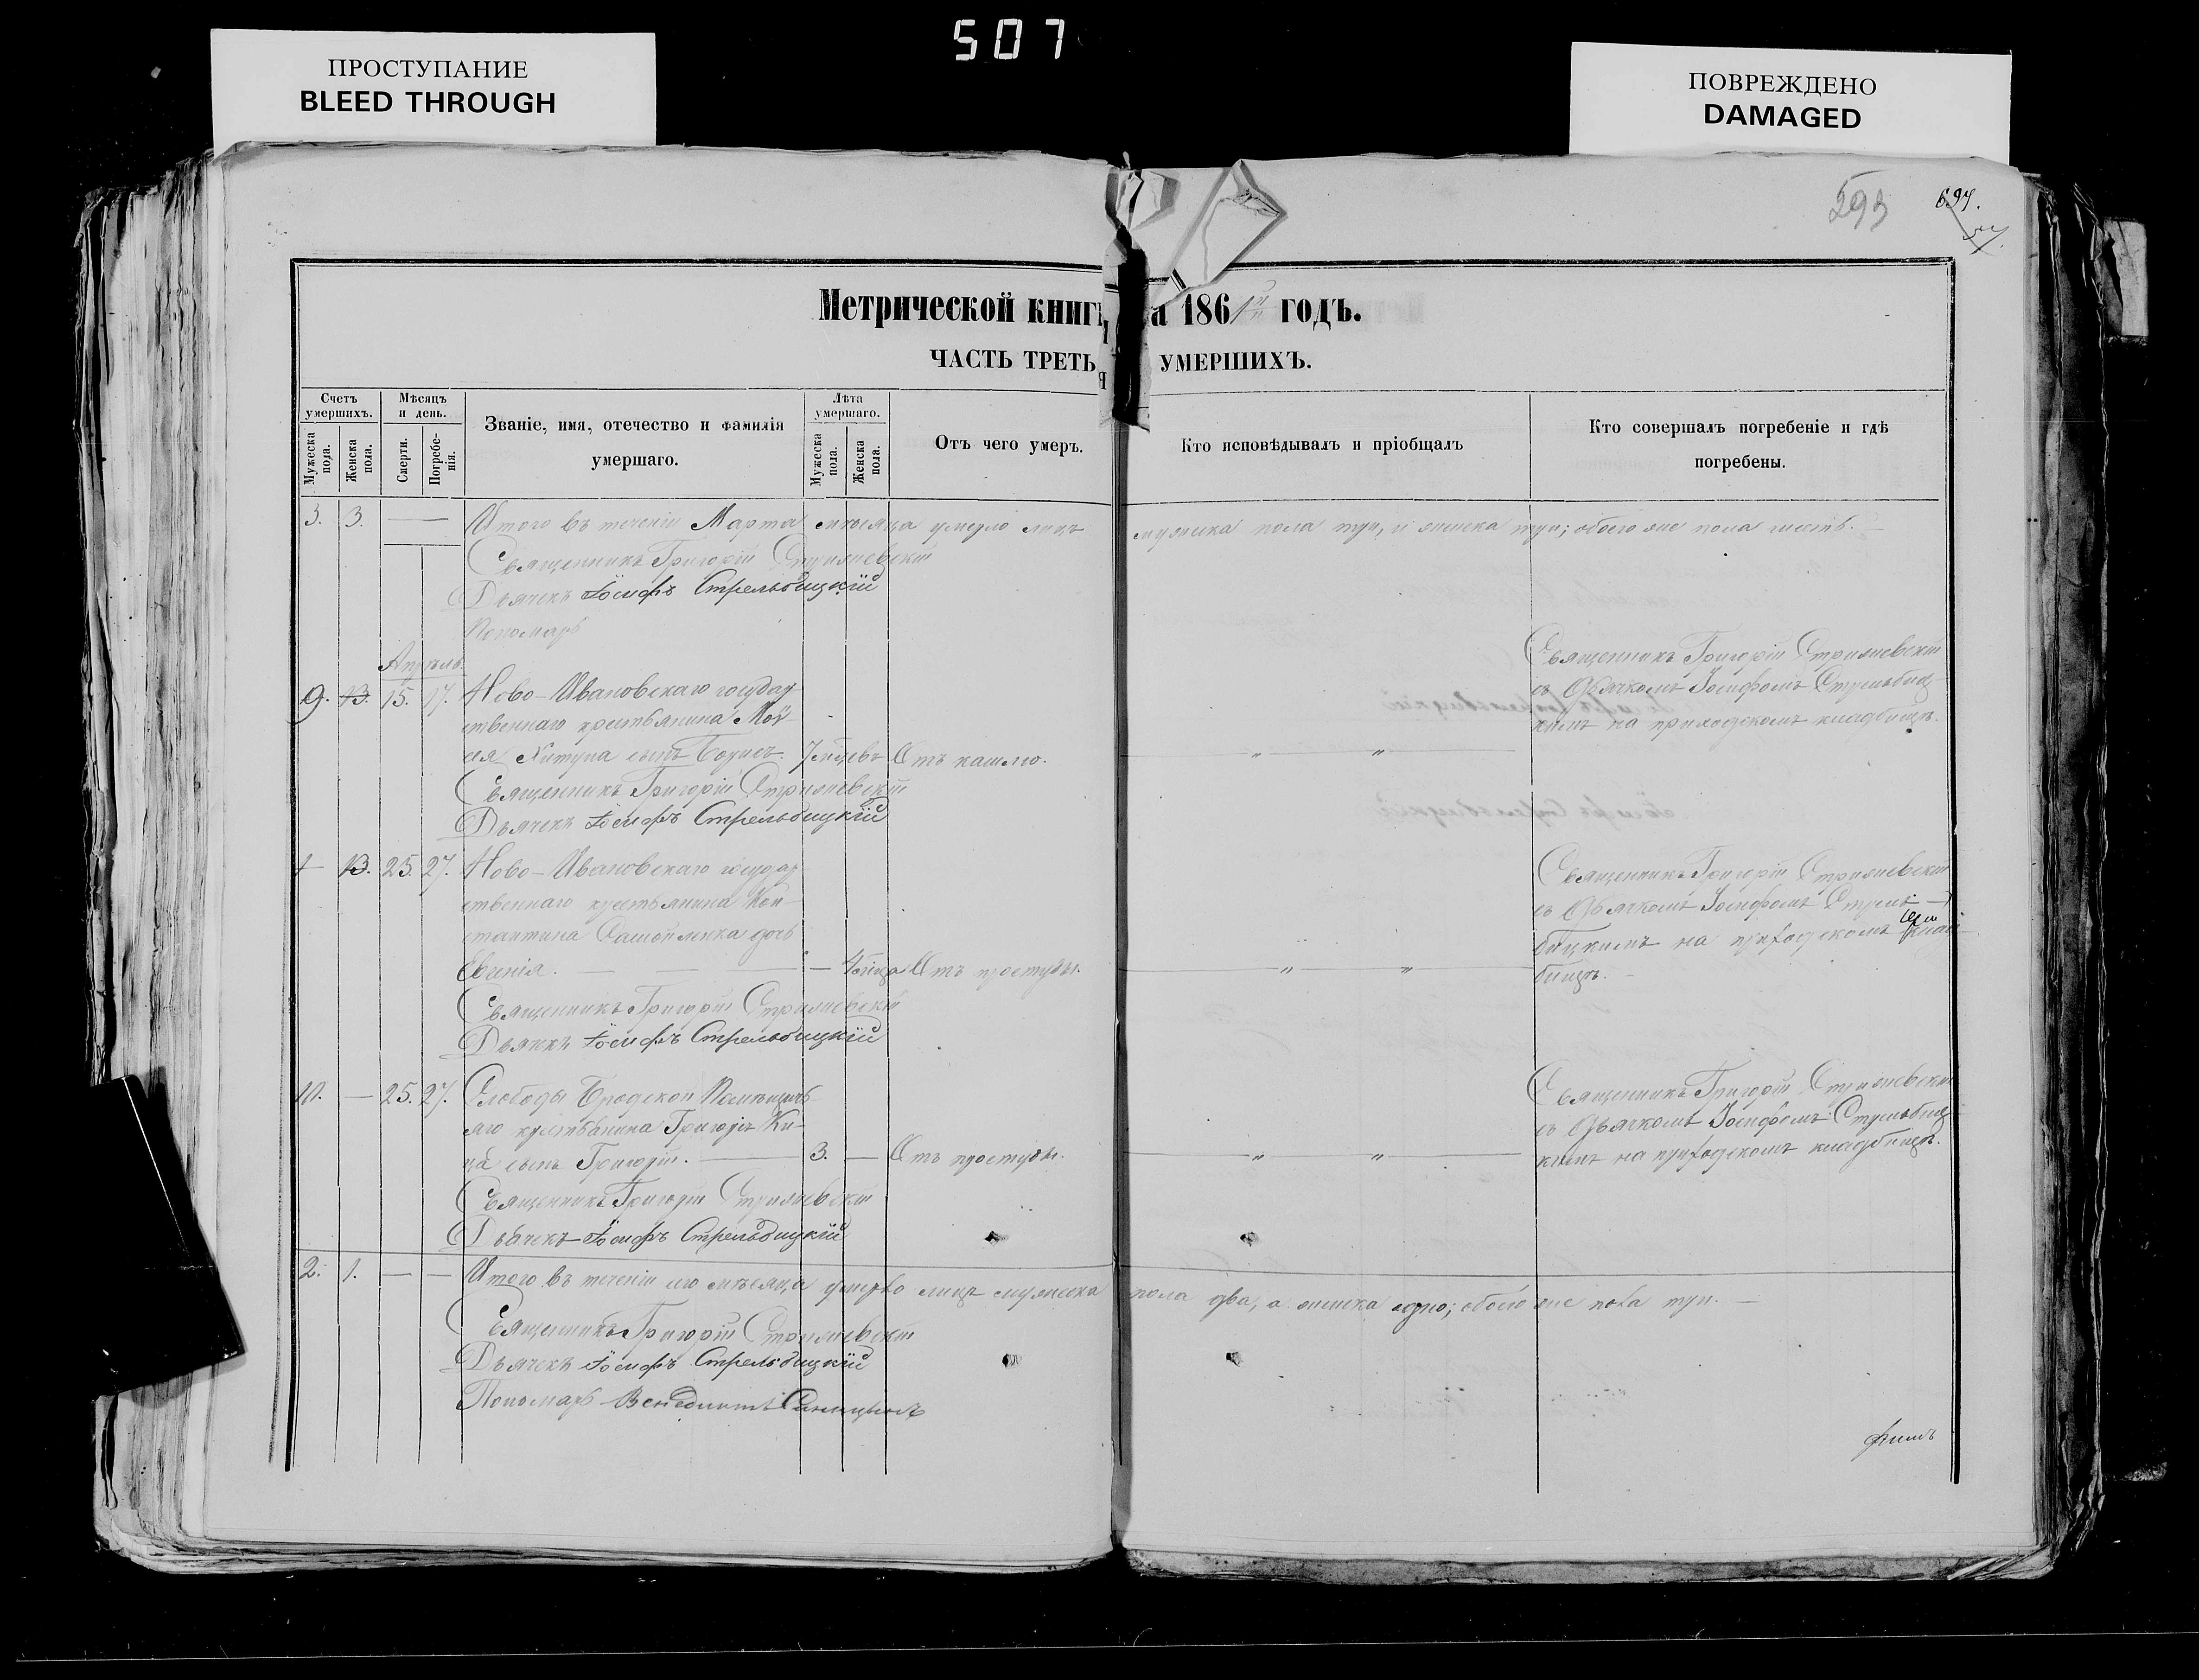 507
ПРОСТУПАНИЕ
BLEED THROUGH
ПОВРЕЖДЕНО
DAMAGED
593
Метрической книг а 1861 годъ.
ЧАСТЬ ТРЕТЬЯ УМЕРШИХЪ.
Счетъ умершихъ.
Мужеска пола.
Женска пола.
Мѣсяцъ и день.
Смерти.
Погребенія.
Званіе, имя, отечество и фамилія
умершаго.
Лѣта умершаго.
Мужеска пола.
Женска пола.
Отъ чего умеръ.
Кто исповѣдывалъ и пріобщалъ
Кто совершалъ погребеніе и гдѣ
погребены.
3. 3. — Итого въ теченіи Марта мѣсяца умерло лицъ мужеска пола три, и женска три; обоего же пола шесть. —
Священникъ Григорій
Дьячекъ Іосифъ Стрельбицкій
Пономарь
Апрѣль.
9. 13. 15. 17. Ново-Ивановскаго государ-
ственнаго крестьянина Мой-
сея сынъ Борисъ. 7 Отъ кашлю. — „ — „ —
Священникъ Григорій
съ Дьячкомъ Іосифомъ Стрельбиц-
кимъ на приходскомъ кладбищѣ.
Священникъ Григорій
Дьячекъ Іосифъ Стрельбицкій
— 13. 25. 27. Ново-Ивановскаго государ
ственнаго крестьянина Кон-
стантина дочь
Евгенія. — — — Отъ простуды. — „ — „ —
Священникъ Григорій
съ Дьячкомъ Іосифомъ Стрель-
бицкимъ на приходскомъ клад-
бищѣ.
Священникъ Григорій
Дьячекъ Іосифъ Стрельбицкій
10. — 25. 27. Слободы Бродской Помѣщичь-
яго крестьянина Григорія Ки-
ца сынъ Григорій. — 3. — Отъ простуды. — „ — „ —
Священникъ Григорій
съ Дьячкомъ Іосифомъ Стрельбиц-
кимъ на приходскомъ кладбищѣ.
Священникъ Григорій
Дьячекъ Іосифъ Стрельбицкій
2. 1. — — Итого въ теченіи сего мѣсяца умерло лицъ мужеска пола два, а женска одно; обоего же пола три. —
Священникъ Григорій
Дьячекъ Іосифъ Стрельбицкій
Пономарь Венедиктъ